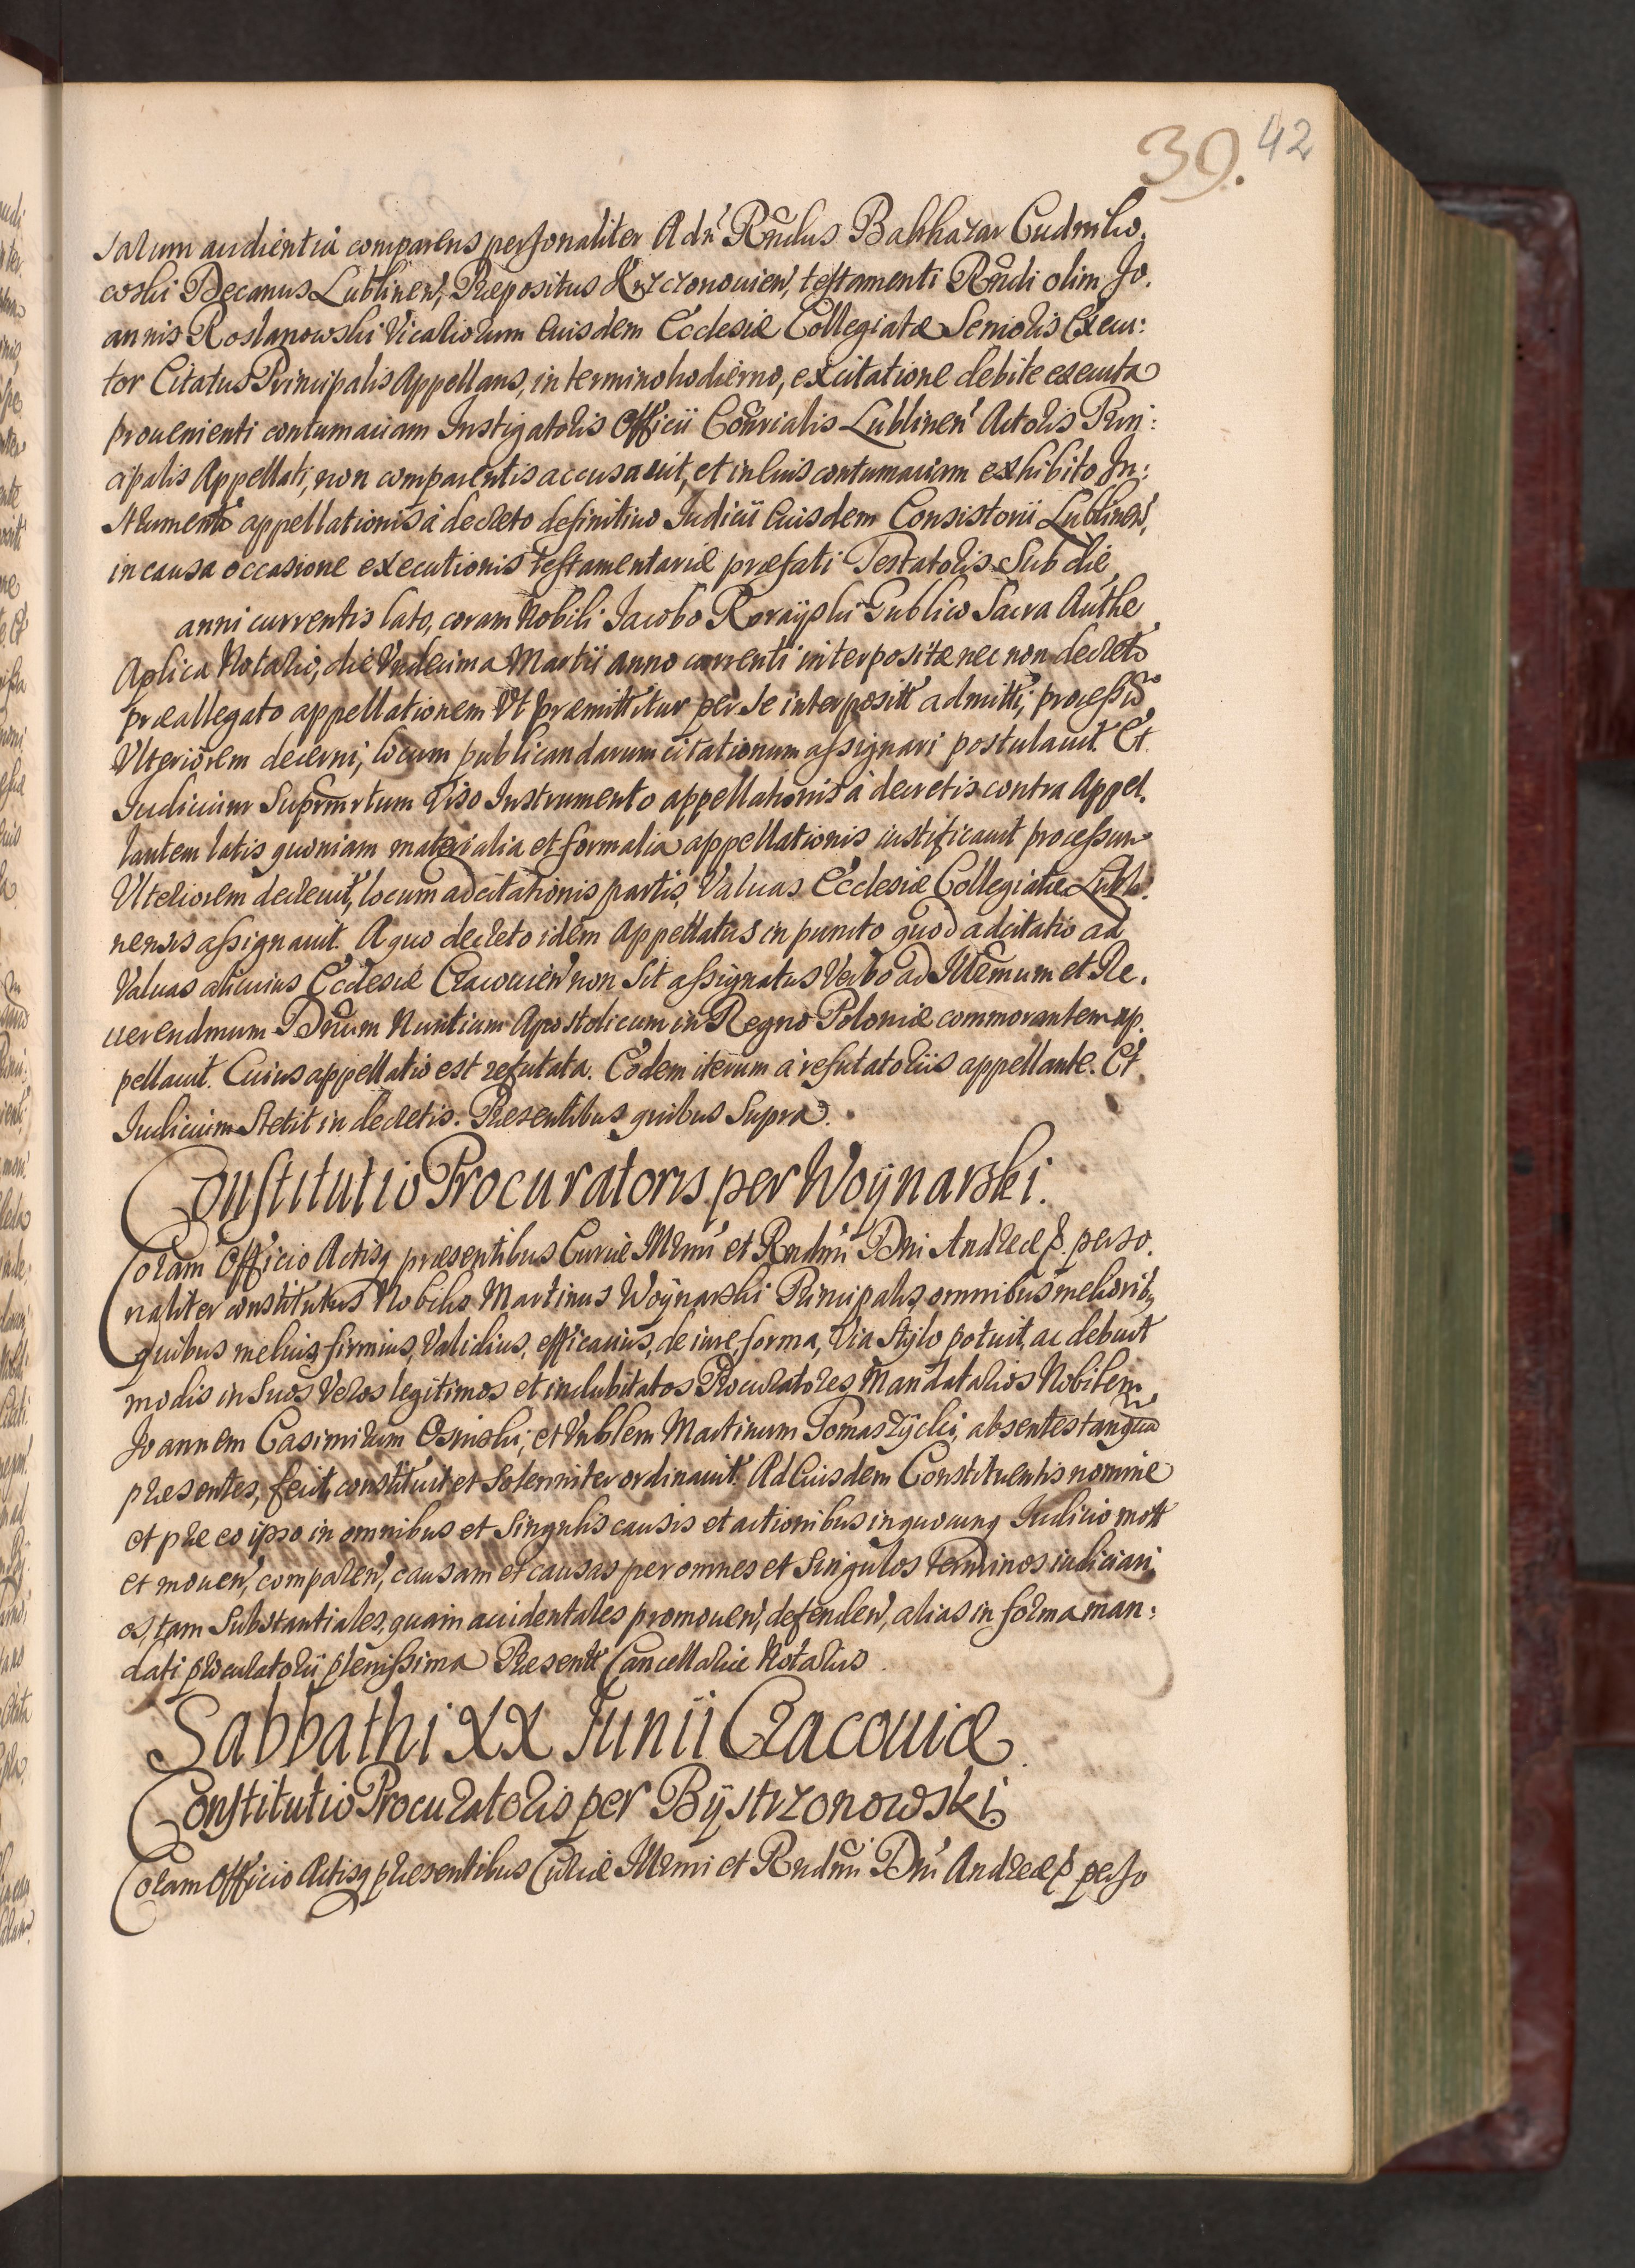 39. 42
sarum audientia comparens personaliter Adn' Rndus Balthazar Cudniho,
coski Decanus Lublinen', Præpositus Krzczonouien', testamenti Rndi olim Jo.
annis Roslanowski Vicariorum Euisdem Ecclesiæ Collegiatæ Senioris Execu:
tor Citatus Principalis Appellans, in termino hodierno, ex citatione debite executa
prouenienti contumaciam Instigatoris Officii Consrialis Lublinen' Actoris Prin:
cipalis Appellati, non comparentis accusauit, et in Euis contumaciam exhibito In:
strumento appellationis à decreto definitiuo Iudicii Euisdem Consistorii Lublinen',
in causa occasione executionis testamentariæ præfati Testatoris Sub die
anni currentis lato, coram Nobili Iacobo Rorayski Publico Sacra Authe
Aplica Notario, die Vndecima Martii anno currenti interpositæ nec non decreto
præallegato appellationem Vt præmittitur per Se interpositt admitti, processũ
Vlteriorem decerni, locum publicandarum citationum assignari postulauit. Et
Iudicium Suprmrtum Viso Instrumento appellationis à decretis contra Appel,
lantem latis quoniam materialia et formalia appellationis iustificauit processum
Vlteriorem decreuit, locum adcitationis partis, Valuas Ecclesiæ Collegiatæ Lubli.
nensis assignauit. A quo decreto idem Appellatus in puncto quod adcitatio ad
Valuas alicuius Ecclesiæ Cracouien' non Sit assignatus Verbo ad Illemum et Re.
uerendmum Dnum Nuntium Apostolicum in Regno Poloniæ commorantem ap.
pellauit. Cuius appellatio est refutata. Eodem iterum à refutatoriis appellante. Et
Iudicium Stetit in decretis. Præsentibus quibus Supra.
Constitutio Procuratoris per Woÿnarski.
Coram Officio Actisq præsentibus Curiæ Illrmi et Rndmi Dni Andreæ p. perso.
naliter constitutus Nobilis Martinus Woÿnarski Principalis omnibus meliorib9
quibus melius, firmius, Validius, efficacius, de iure, forma, Via Stÿlo potuit, ac debuit
modis in Suos Veros legitimos et indubitatos Procuratores Mandatarios Nobilem
Joannem Casimirum Osinski, et Vnblem Martinum Tomaszÿcki, absentes tanquã
præsentes, fecit, constituit et Solenniter ordinauit. Ad Euisdem Constituentis nomine
et pre eo ipso in omnibus et Singulis causis et actionibus in quocunq Iudicio mott
et mouen', comparen', causam et causas per omnes et Singulos terminos iudiciari
os, tam Substantiales, quam accidentales promouen', defenden', alias in forma man:
dati procuratorii plenissima Præsentt Cancellariæ Notariis.
Sabbathi XX Junii Cracouiæ
Constitutio Procuratoris per Bÿstrzonowski.
Coram Officio Actisq præsentibus Curiæ Illrmi et Rndmi Dni Andreæ p perso